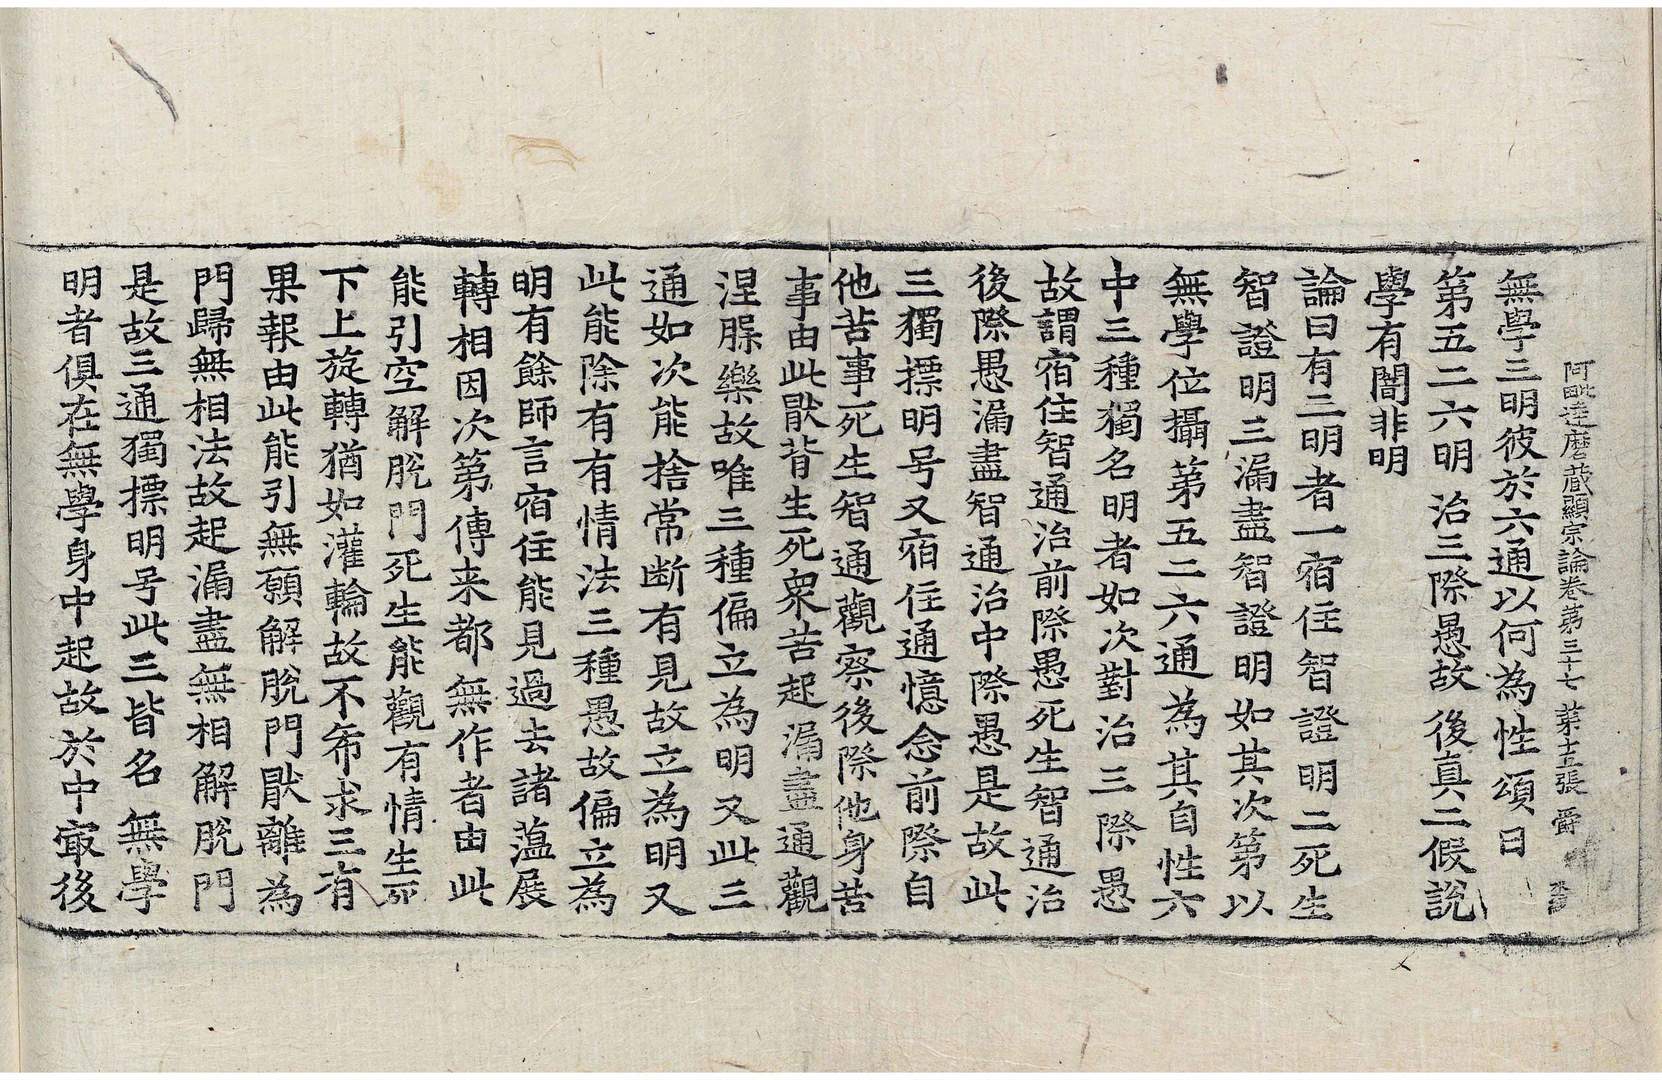 阿毗達磨藏顯宗論卷第三十七 第十五張 爵
無學三明彼於六通以何為性頌曰
第五二六明 治三際愚故 後真二假說
學有闇非明
論曰有三明者一宿住智證明二死生
智證明三漏盡智證明如其次第以
無學位攝第五二六通為其自性六
中三種獨名明者如次對治三際愚
故謂宿住智通治前際愚死生智通治
後際愚漏盡智通治中際愚是故此
三獨摽明号又宿住通憶念前際自
他苦事死生智通觀察後際他身苦
事由此猒背生死衆苦起漏盡通觀
涅槃樂故唯三種偏立為明又此三
通如次能捨常断有見故立為明又
此能除有有情法三種愚故偏立為
明有餘師言宿住能見過去諸蕰展
轉相因次第傳来都無作者由此
能引空解脫門死生能觀有情生死
下上旋轉猶如灌輪故不希求三有
果報由此能引無願解脫門猒離為
門歸無相法故起漏盡無相解脫門
是故三通獨摽明号此三皆名無學
明者俱在無學身中起故於中㝡後